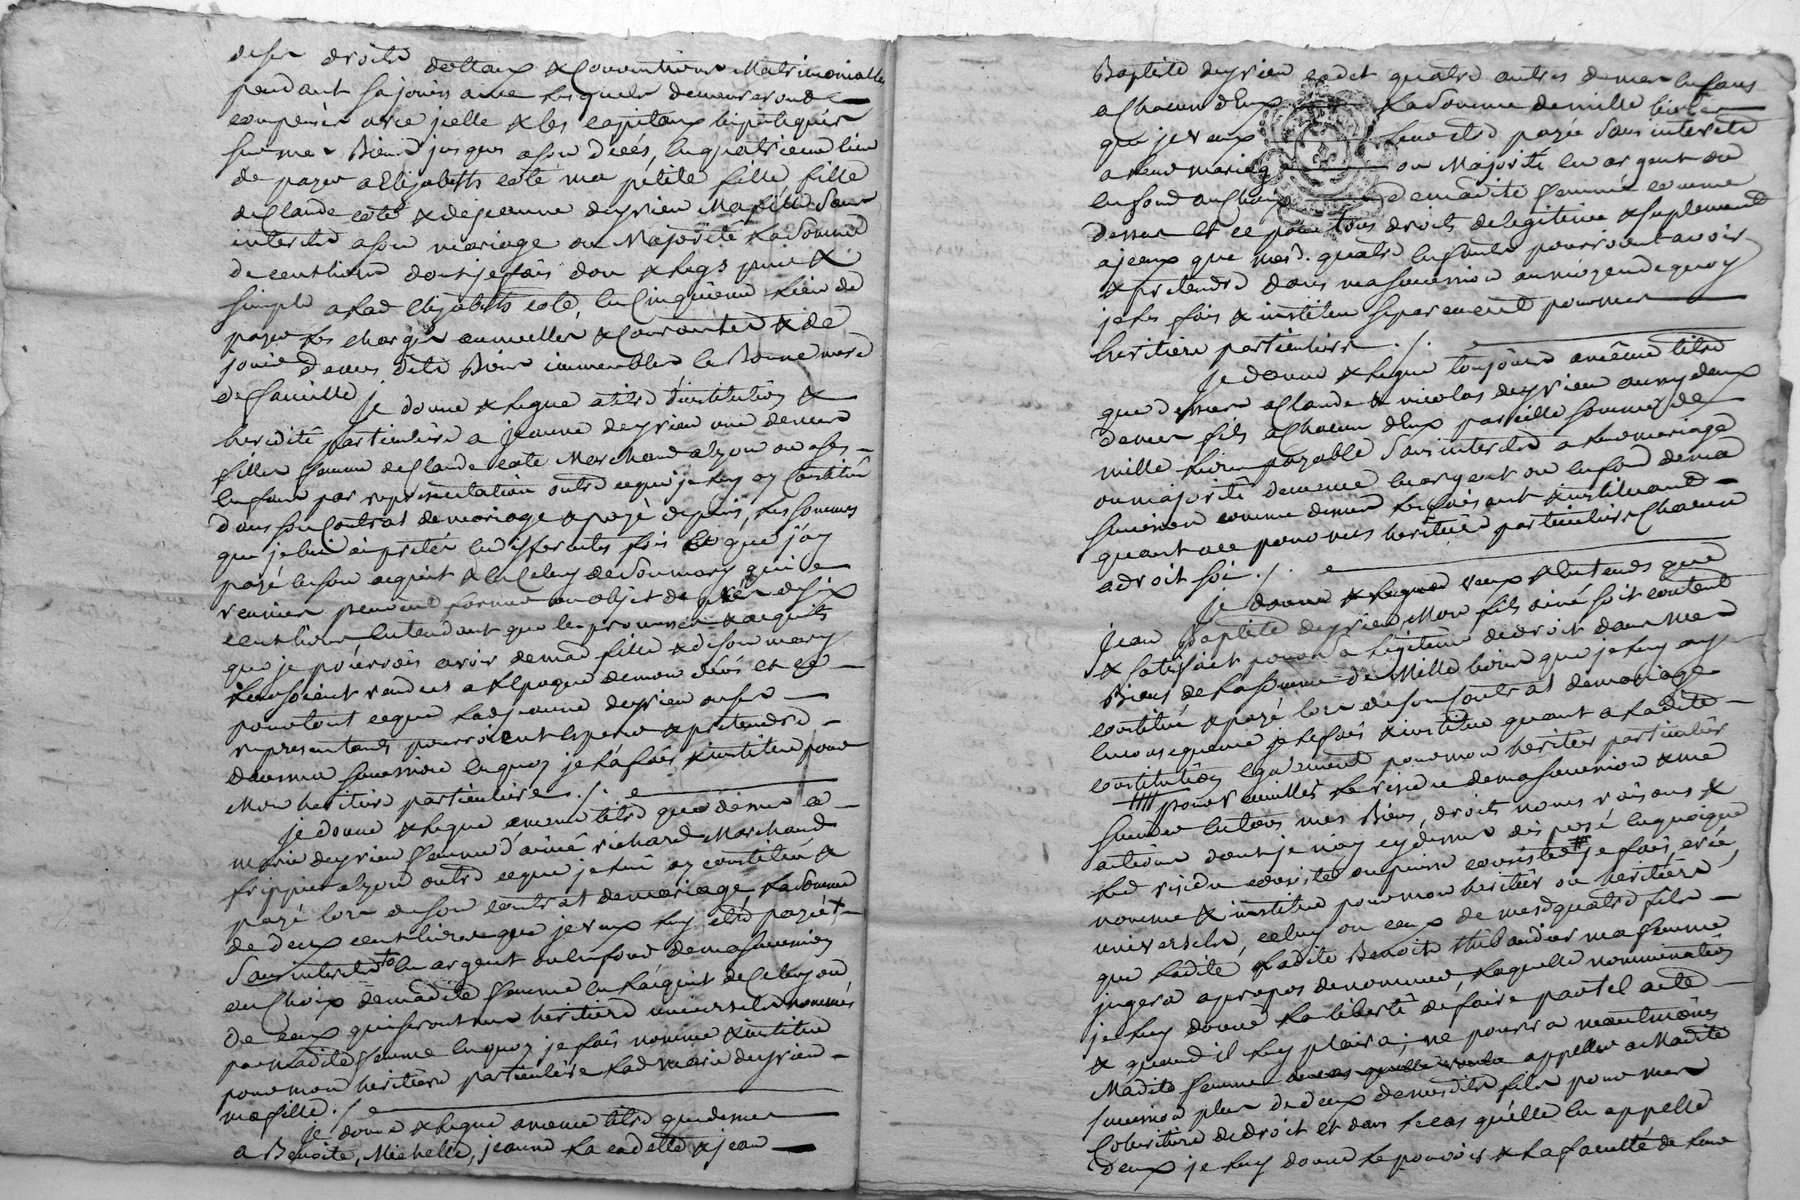 de ses droits dottaux & Conventions Matrimonialles
pendant sa jouissance lesquels demeureront
compensés avec jcelle & les capitaux hipotequés
sur mes Biens jusques a son décés, en quatrieme lieu
de payer a Elizabeth coté ma petite fille fille
de Claude coté & de jeanne deyrieu Ma fille Sans
interets a son mariage ou Majorité La Somme
de cent livres dont je fais don & legs pur &
simple a Lad. Elizabeth coté, en Cinquieme Lieu de
payer les charges annuelles & Courantes & de
jouir de mes dits Biens immeubles en Bonne mere
de famille
Je donne & legue a titre d'institution &
heredité particuliere a jeanne deyrieu une de mes
filles femme de Claude coté Marchand a lyon ou a ses
Enfans par representation outre ce que je luy ay Constitué
dans son Contrat de mariage & payé depuis, les sommes
que je lui ai pretés en differentes fois & que j'ay
payé en son acquit & en Celuy de Son mary qui se
reunies peuvent former un objet de près de six
cent livres Entendant que les promesses & acquits
que je pourrois avoir de mad. fille & de son mary
leur soient rendues a l'Epoque de mon décés et ce
pour tout ce que Lad. jeanne deyrieu ou ses
representants pourroient esperer & pretendre
dans ma succession en quoy je la fais & institue pour
Mon heritiere particuliere ./.
je donne & legue a meme titre que dessus a
marie deyrieu femme d'aimé richard Marchand
frippier a lyon outre ce que je lui ay constitué &
payé lors de son contrat de mariage La Somme
de deux cent livres que je veux luy etre payée
Sans interets en argent ou en fond de ma succession
au Choix de madite femme en l'acquit de Celuy ou
de ceux qui seront mes heritiers universels nommés
par madite femme en quoy je fais nomme & institue
pour mon heritiere particuliere Lad. marie deyrieu
ma fille ./.
Je donne & legue a meme titre que dessus
a Benoite, Michelle, jeanne La cadette & jean
Baptiste deyrieu cadet quatre autres de mes Enfans
a Chacun d'Eux La Somme de mille livres
que je veux Leur etre payée Sans interets
a leur mariage ou Majorité en argent ou
en fond au Choix de madite femme comme
dessus Et ce pour tous droits de legitime & suplement
a jceux que mesd. quatre Enfants pourroient avoir
& pretendre dans ma succession au moyen de quoy
je les fais & institue separement pour mes
heritiers particuliers ./.
Je donne & legue toujours a même titre
que dessus a Claude & nicolas deyrieu aussy deux
de mes fils a Chacun d'Eux pareille somme de
mille livres payable Sans interets a leur mariage
ou majorité de meme en argent ou en fond de ma
succession comme dessus les faisant & instituant
quant a ce pour mes heritiers particuliers Chacun
a droit soi ./.
Je donne & legue veux & Entends que
Jean Baptiste deyrieu Mon fils ainé soit content
& satisfait pour sa legitime de droit dans mes
Biens de La somme de Mille livres que je luy ay
constitué & payé lors de son Contrat de mariage
en consequence je le fais & institue quant a La dite
constitution egalement pour mon heritier particulier
pour recueillir le residu de ma succession & me
succeder en tous mes Biens, droits noms raisons &
actions dont je n'ay cy dessus disposé en quoi que
led. residu consiste ou puisse consister # je fais, crée,
nomme & institue pour mon heritier ou heritiers
universels, celuy ou ceux de mesd. quatre fils
que ladite Ladite Benoite thibaudier ma femme
jugera apropos de nommer, Laquelle nomination
je luy donne La liberté de faire par tel acte
& quand il luy plaira; ne pourra neantmoins
Madite femme appeller a Madite
succession plus de deux de mesdits fils pour mes
Coheritiers de droit et dans le cas qu'elle en appelle
deux je luy donne le pouvoir & La faculté de leur